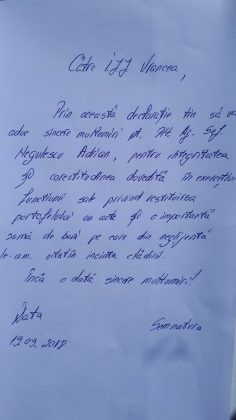 Către IJJ Vrancea,
Prin această declarație țin să vă
aduc sincere mulțumiri pt. Plt. Aj. Șef.
Negulescu Adrian, pentru integritatea
și corectitudinea dovedită în exercițiul
funcțiunii sale privind restituirea
portofelului cu acte și o importantă
sumă de bani pe care din neglijență
le-am uitat în incinta clădirii.
Încă o dată sincere mulțumiri!
Data
Semnătura
19.09.2018